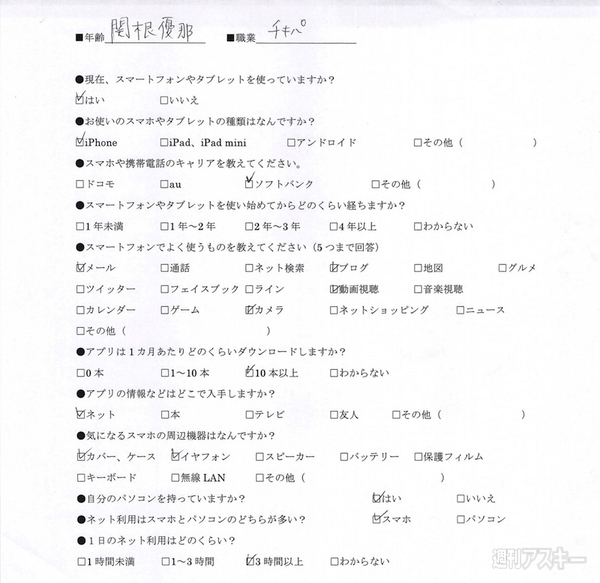 ■年齢 関根優那 ■職業 チキパ
●現在、スマートフォンやタブレットを使っていますか？
☑はい □いいえ
●お使いのスマホやタブレットの種類はなんですか？
☑iPhone □iPad、iPad mini □アンドロイド □その他（ ）
●スマホや携帯電話のキャリアを教えてください。
□ドコモ □au ☑ソフトバンク □その他（ ）
●スマートフォンやタブレットを使い始めてからどのくらい経ちますか？
□1年未満 □1年～2年 □2年～3年 □4年以上 □わからない
●スマートフォンでよく使うものを教えてください（5つまで回答）
☑メール □通話 □ネット検索 ☑ブログ □地図 □グルメ
□ツイッター □フェイスブック □ライン ☑動画視聴 □音楽視聴
□カレンダー □ゲーム ☑カメラ □ネットショッピング □ニュース
□その他（ ）
●アプリは1カ月あたりどのくらいダウンロードしますか？
□0本 □1～10本 ☑10本以上 □わからない
●アプリの情報などはどこで入手しますか？
☑ネット □本 □テレビ □友人 □その他（ ）
●気になるスマホの周辺機器はなんですか？
☑カバー、ケース ☑イヤフォン □スピーカー □バッテリー □保護フィルム
□キーボード □無線LAN □その他（ ）
●自分のパソコンを持っていますか？ ☑はい □いいえ
●ネット利用はスマホとパソコンのどちらが多い？ ☑スマホ □パソコン
●1日のネット利用はどのくらい？
□1時間未満 □1～3時間 ☑3時間以上 □わからない
週刊アスキー